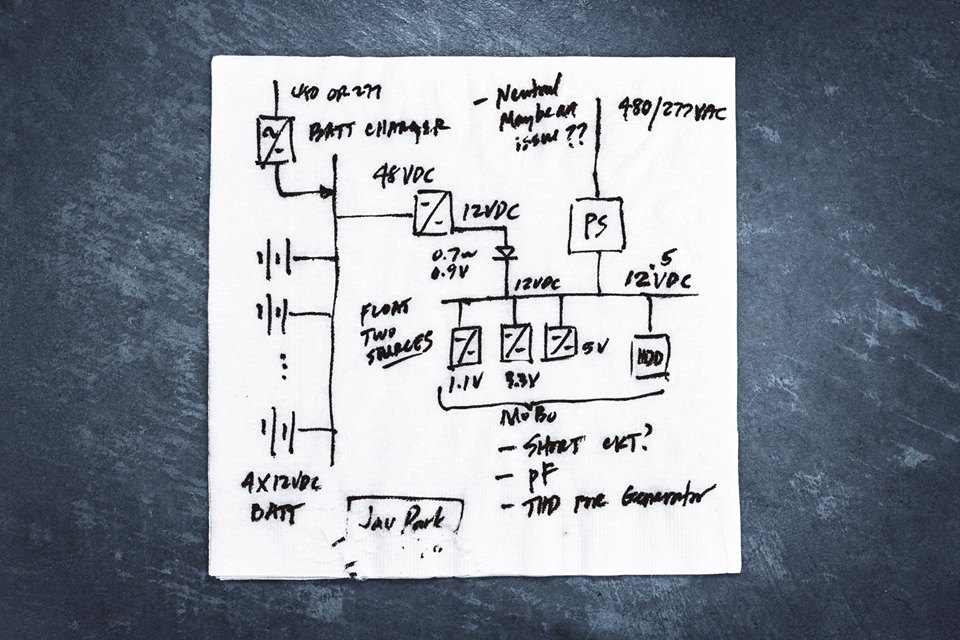 480 OR 277
BATT CHARGER
- Neutral
Maybe an
issue ??
480/277VAC
48VDC
12VDC
PS
0.7~
0.9V
12VDC
12.5VDC
FLOAT
TWO
SOURCES
5V
HDD
1.1V
3.3V
MoBo
- SHORT CKT?
- PF
- THD FOR Generator
4X12VDC
BATT
Jay Park